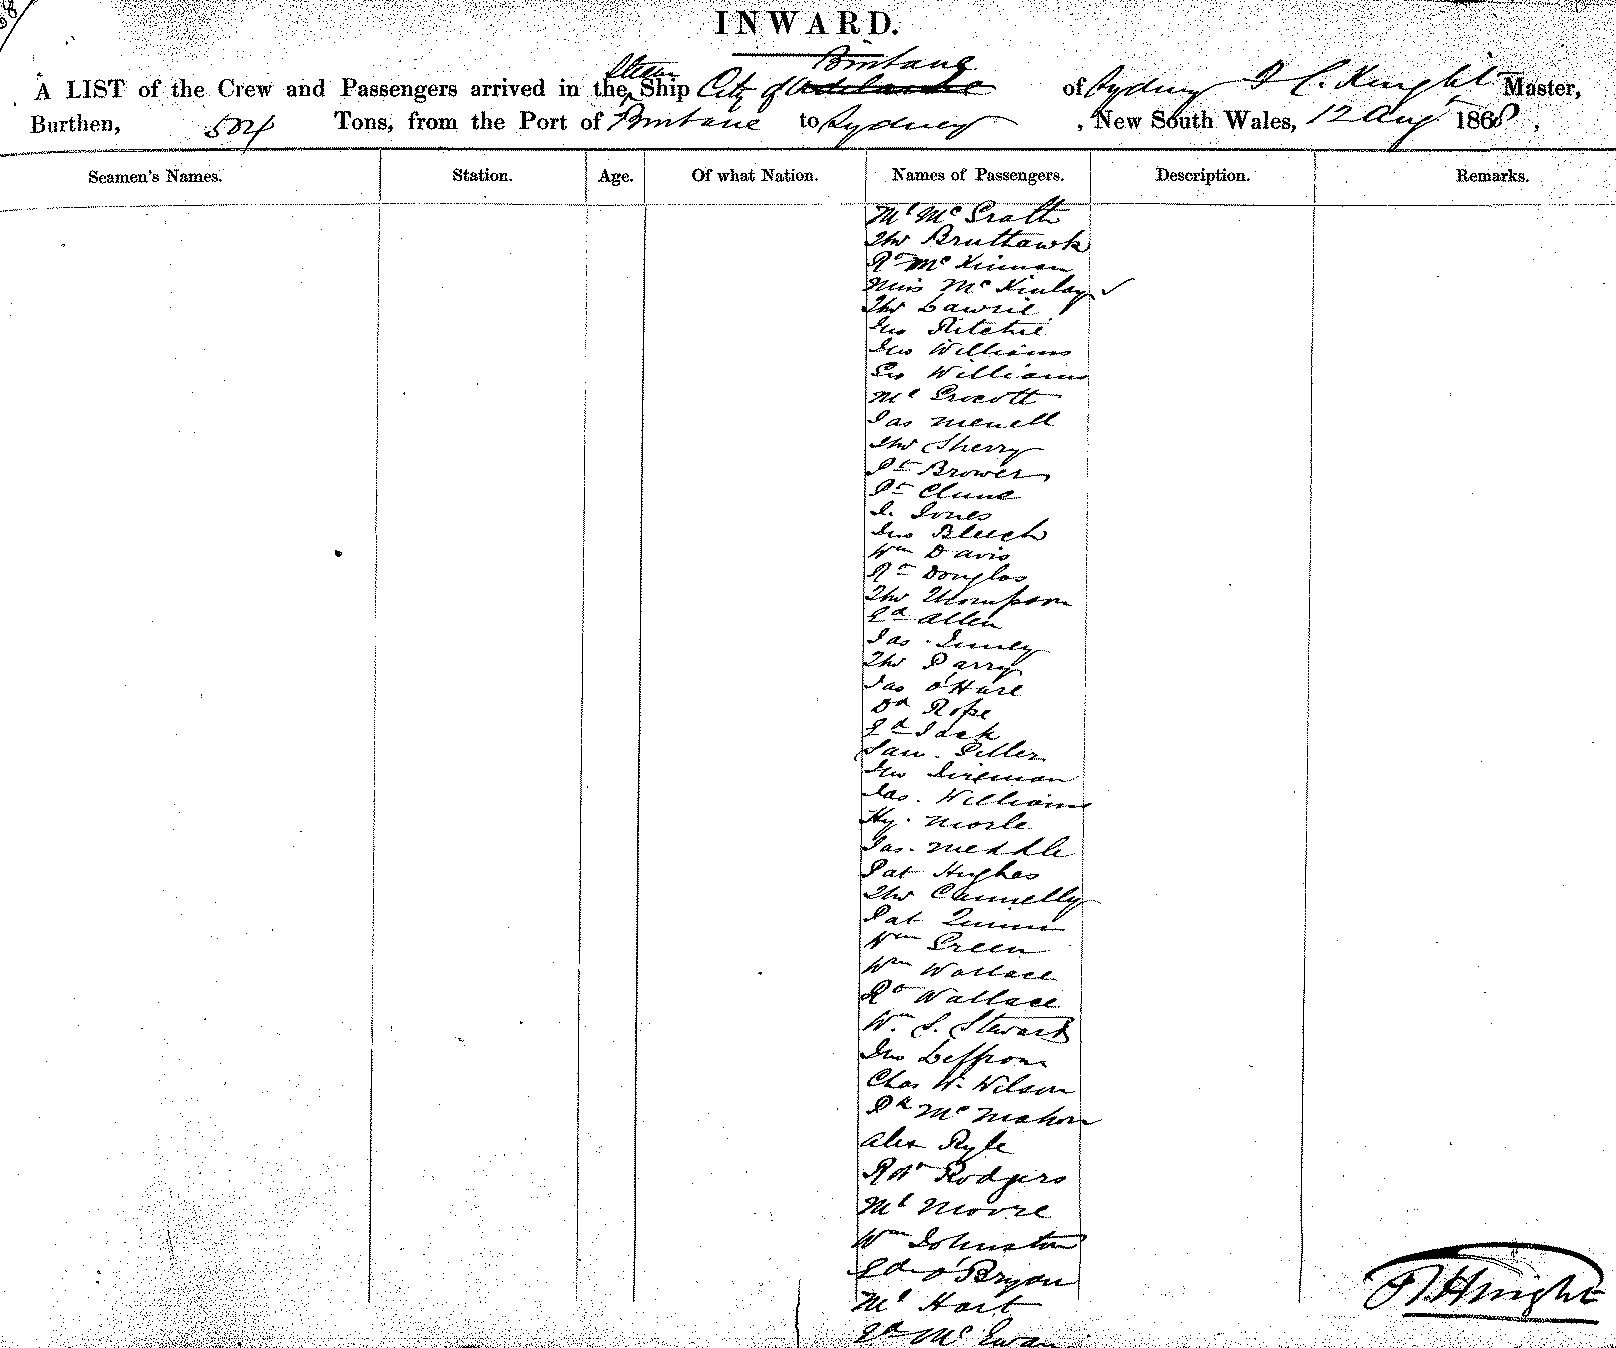 INWARD.
Steam Brisbane
A LIST of the Crew and Passengers arrived in the Ship City of Adelaide of Sydney Knight Master,
Burthen, 504 Tons, from the Port of Brisbane to Sydney , New South Wales, 12 Aug 1868 ,
Seamen's Names. Station. Age. Of what Nation. Names of Passengers. Description. Remarks.
Mr McGrath
Thos
Rt McKinnon
Miss McKinlay ✓
Thos Lawrie
Jno Ritchie
Jno Williams
Geo Williams
Mr
Jas
Thos Sherry
Pt Brower
Pt Clune
J. Jones
Jno Bleech
Wm Davis
Rt Douglas
Thos Thompson
Ed Allen
Jas
Thos Parry
Jas O'Hare
Dd Rope
Ed Jack
Sam.
Jno
Jas. Williams
Hy. Morle
Jas. Meddle
Pat Hughes
Thos Connelly
Pat Quinn
Wm Green
Wm Wallace
Rt Wallace
Wm S. Stewart
Jno
Chas W. Wilson
Pk McMahon
Alex Ryle
Robt Rodgers
Mr Moore
Wm Johnston
Ed O'Bryan
Mr Hart
McEwan
Knight